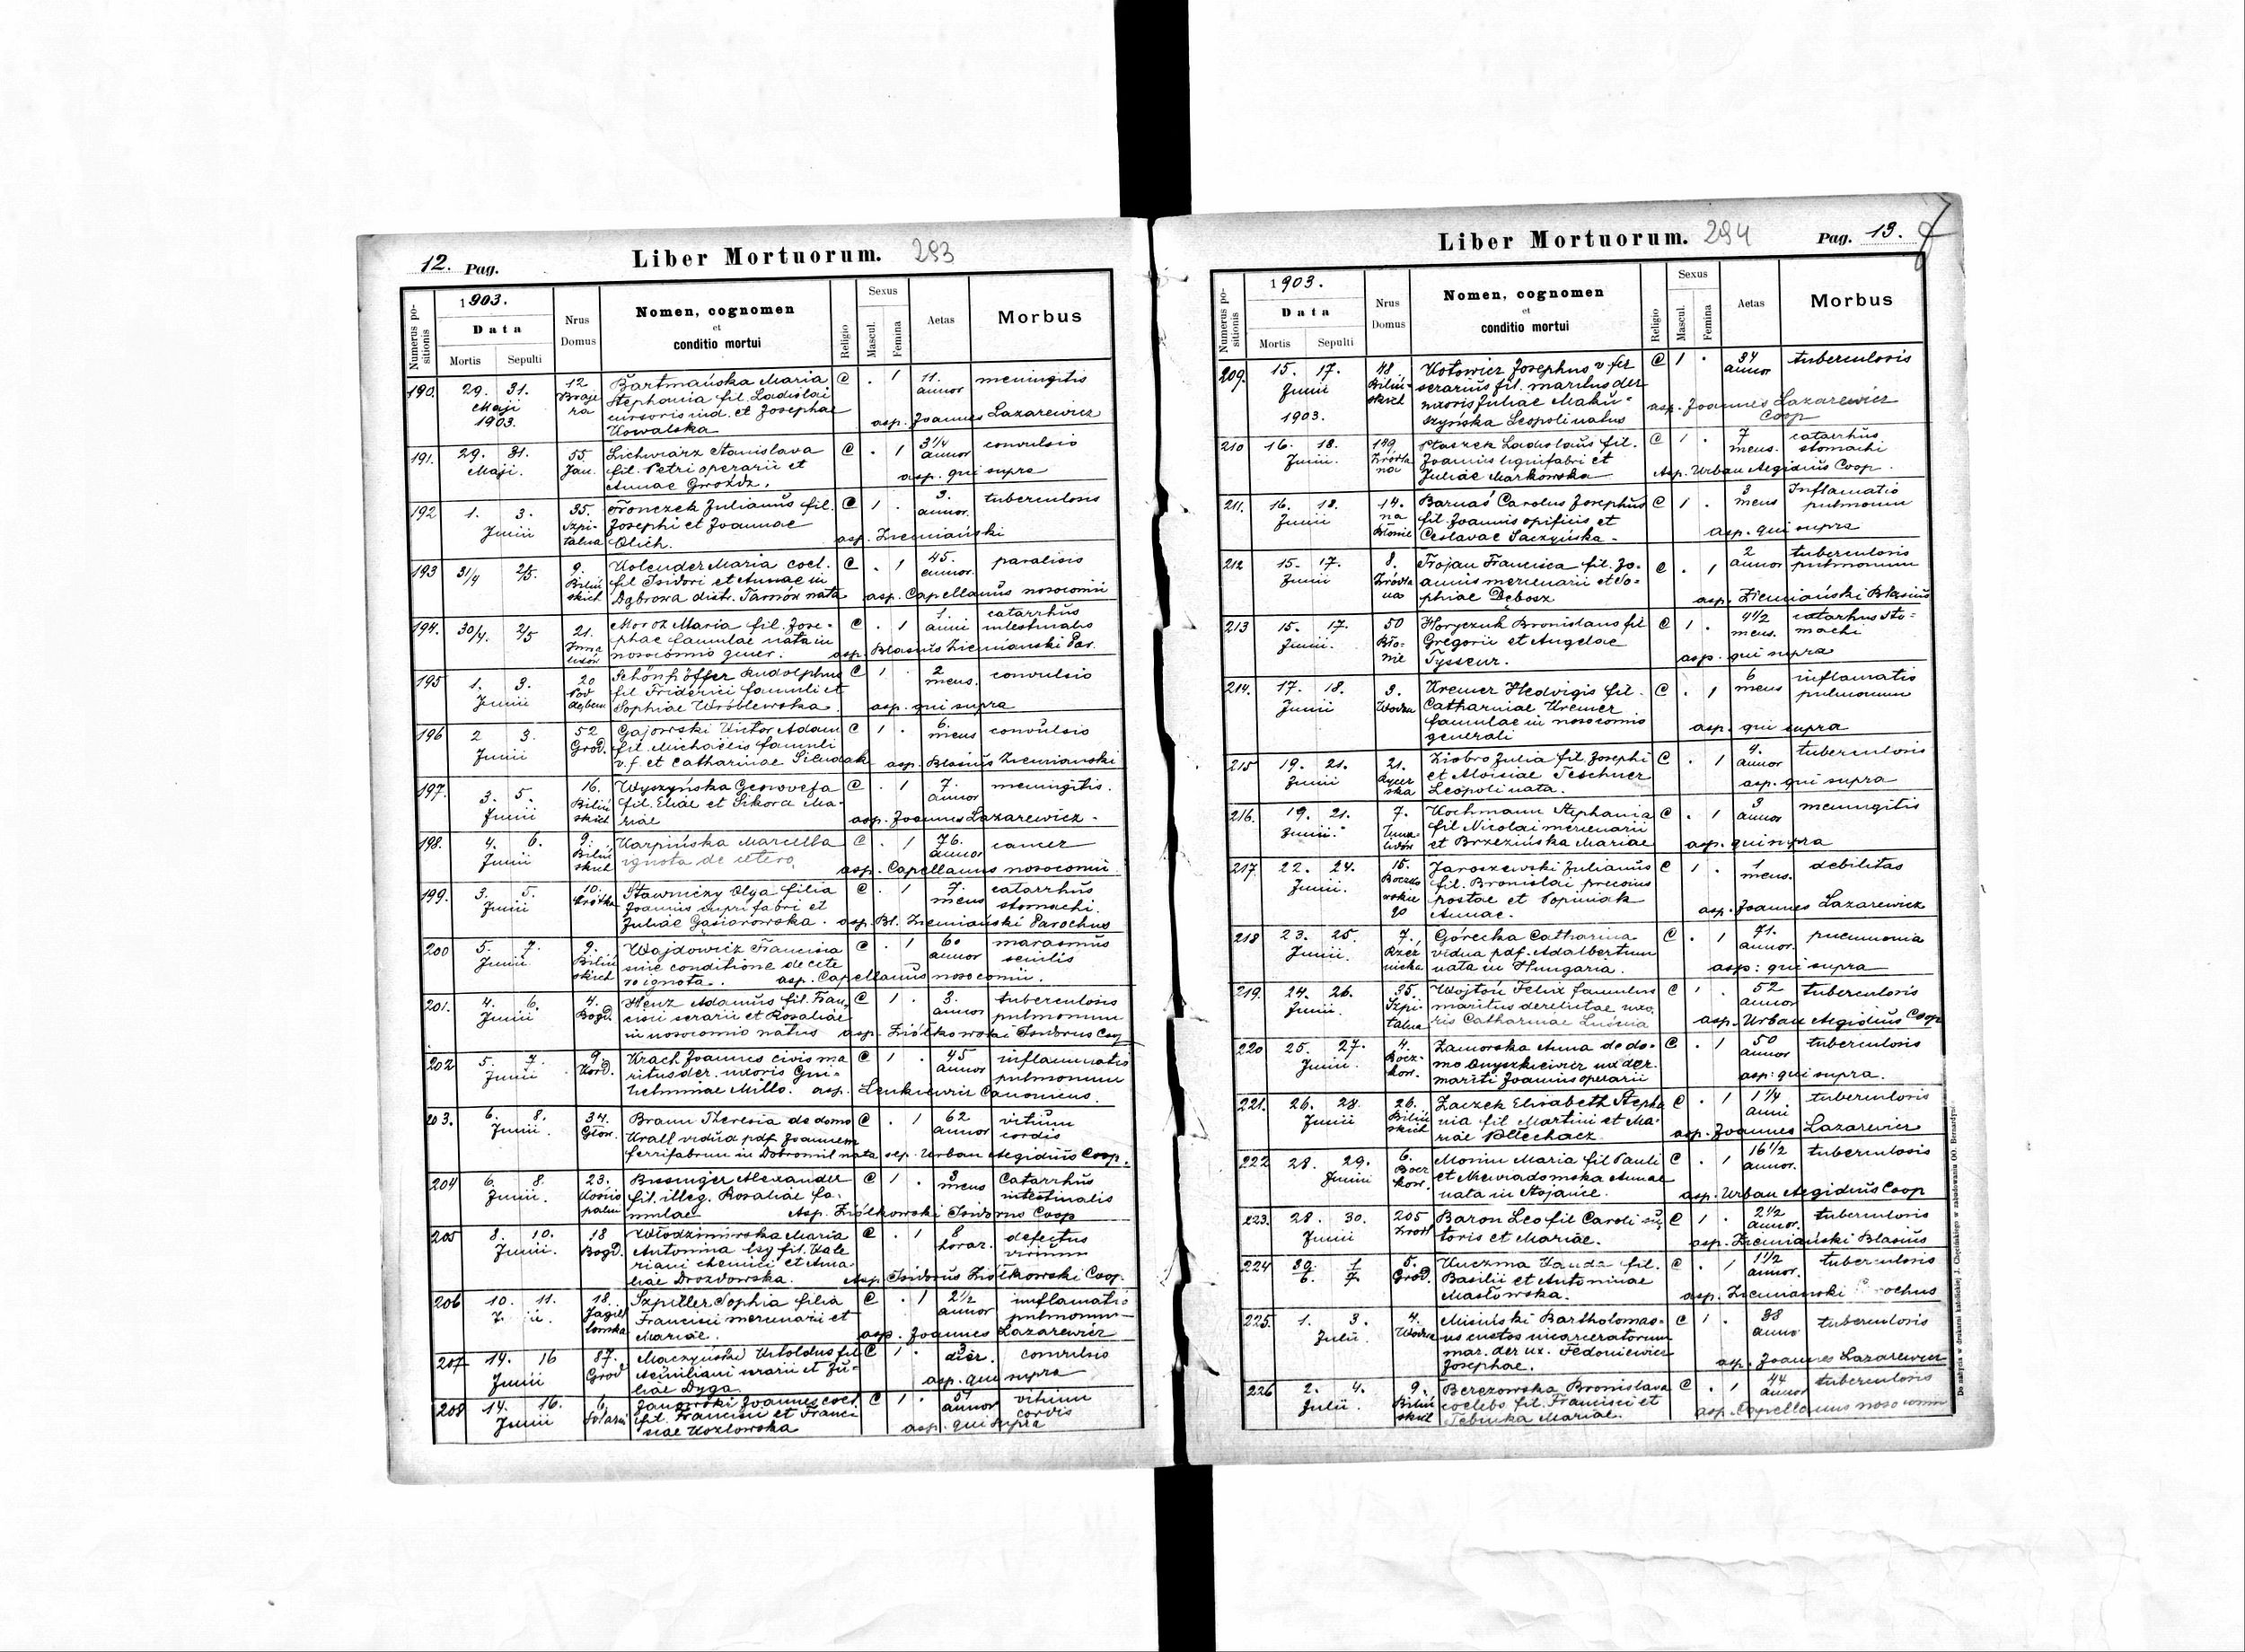 12. Pag.
Liber Mortuorum. 293
Numerus positionis
1903.
Data
Mortis Sepulti
Nrus Domus
Nomen, cognomen
et
conditio mortui
Religio
Sexus
Mascul. Femina
Aetas
Morbus
190. 29. 31. 12 Bartmańska Maria C . 1 11. meningitis
Maji Stephania fil. Ladislai annor
1903. et Josephae
Kowalska asp. Joannes Lazarewicz
191. 29. 31. 55. Lichwiarz Stanislava C . 1 3 1/4 convulsio
Maji. Jan. fil. Petri operarii et annor
Annae Gwóźdz. asp. qui supra
192 1. 3. 35. Fronczek Julianus fil. C 1 . 3. tuberculosis
Junii Szpi- Josephi et Joannae annor.
talna Olich. asp. Ziemiański
193 31/4 2/5. 9. Kolender Maria coel. C . 1 45. paralisis
Biliń fil Isidori et Annae in annor.
skich Dąbrowa distr. Tarnów nata asp. Capellanus nosocomii
194. 30/4. 2/5 21. Moroz Maria fil. Jose- C . 1 1. catarrhus
phae famulae nata in anni intestinalis
nosocomio gener. asp. Blasius Ziemianski Par.
195 1. 3. 20 Schönhöffer Rudolphus C 1 . 2 convulsio
Junii Pod fil Friderici famuli et meus.
dębem Sophiae Wróblewska. asp. qui supra
196 2 3. 52 Gajowski Victor Adam C 1 . 6. convulsio
Junii Grod. fil. Michaëlis famuli meus
v.f. et Catharinae asp. Blasius Ziemianski
197. 3. 5. 16. Wyszyńska Genovefa C . 1 7. meningitis.
Junii Biliń fil. Eliae et Sikora Ma- annor
skich riae asp. Joannes Lazarewicz -
198. 4. 6. 9. Karpińska Marcella C . 1 76. cancer
Junii Biliń ignota de cetero annor
skich asp. Capellanus nosocomii
199. 3. 5. 10. Stawniczy Olga filia C . 1 7. catarrhus
Junii Krótka Joannis cuprifabri et meus stomachi.
Juliae Gąsiorowska. asp. Bl. Ziemiański Parochus
200 5. 7. 9. Wajdowicz Francisca C . 1 60 marasmus
Junii Biliń sine conditione de cete annor senilis
skich ro ignota. asp. Capellanus nosocomii.
201. 4. 6. 4. Henz Adamus fil. Fran- C 1 . 3. tuberculosis
Junii Bogd. cisci serarii et Rosaliae annor pulmonum
in nosocomio natus asp. Ziółkowski Isidorus Coop
202 5. 7. 9. Krach Joannes civis ma C 1 . 45 inflammatio
Junii Kord. ritus der. uxoris Gui- annor pulmonum
helminae Millo. asp. Lenkiewicz Canonicus.
203. 6. 8. 34. Braun Theresia de domo C . 1 62 vitium
Junii. Głow. Krall vidua pdf Joannem annor cordis
ferrifabrum in Dobromil nata asp. Urban Aegidius Coop.
204 6. 8. 23. Bissinger Alexander C 1 . 3 Catarrhus
Junii. fil. illeg. Rosaliae fa- meus intestinalis
mulae Asp. Ziółkowski Isidorus Coop
205 8. 10. 18 Włodzimirska Maria C . 1 8 defectus
Junii. Bogd. Antonina fil. Vale horar. virium
riani chemici et Ama-
liae Drozdowska. Asp. Isidorus Ziółkowski Coop.
206 10. 11. 18. Szpiller Sophia filia C . 1 2 1/2 inflamatio
Jagiel Francisci mercenarii et annor pulmonum
lonska Mariae. asp. Joannes Lazarewicz
207 14. 16 87. Maczyński Vitoldus fil C 1 . 3 convulsio
Junii Grod et Ju- dier.
liae Dyga. asp. qui supra
208 14. 16. 6. Janowski Joannes coel. C 1 . 51 vitium
Junii Solarni fil. Francisci et Franci annor cordis
scae Kozlowska asp. qui supra
Liber Mortuorum. 294
Pag. 13.
Numerus positionis
1903.
Data
Mortis Sepulti
Nrus Domus
Nomen, cognomen
et
conditio mortui
Religio
Sexus
Mascul. Femina
Aetas
Morbus
209. 15. 17. 48. Kotowicz Josephus C 1 . 34 tuberculosis
Junii Biliń- serarius fil. maritus der annor
skich uxoris Juliae Maku-
1903. szyńska Leopoli natus asp. Joannes Lazarewicz Coop
210 16. 18. 149. Ptaszek Ladislaus fil. C 1 . 7 catarrhus
Junii. Źródla Joannis lignifabri et meus. stomachi
na Juliae Markowska Asp. Urban Aegidius Coop.
211. 16. 18. 14. Barnaś Carolus Josephus C 1 . 3 Inflamatio
Junii na fil. Joannis opificis et meus pulmonum
Błonie Ceslavae Saczyńska. asp. qui supra
212 15. 17. 8. Trojan Francisca fil. Jo- C . 1 2 tuberculosis
Junii Źródla annis mercenarii et So- annor pulmonum
na phiae Debosz asp. Ziemiański Blasius
213 15. 17. 50 Horyczuk Bronislaus fil C 1 . 4 1/2 catarhus sto-
Junii. Bło- Gregorii et Angelae meus. machi
nie Tysseur. asp. qui supra
214. 17. 18. 3. Kremer Hedvigis fil. C . 1 6 inflamatio
Junii Wodna Catharniae Kremer meus pulmonum
famulae in nosocomio
generali asp. qui supra
215 19. 21. 21. Ziobro Julia fil. Josephi C . 1 4. tuberculosis
Junii et Aloisiae Teschner annor
Leopoli nata. asp. qui supra
216. 19. 21. 7. Kochmann Stephania C . 1 3 meningitis
Junii. fil Nicolai mercenarii annor
et Brzezińska Mariae asp. qui supra
217. 22. 24. 15. Jaroszewski Julianus C 1 . 1 debilitas
Junii. fil. Bronislai meus.
postae et Popiniak
Annae. asp. Joannes Lazarewicz
218 23. 25. 7. Górecka Catharina C . 1 71. pneumonia
Junii. Rzeź vidua pdf. Adalbertum annor.
nicka nata in Hungaria. asp: qui supra
219. 24. 26. 35. Wojtoń Felix famulus C 1 . 52 tuberculosis
Junii. Szpi- maritus derelictae uxo annor
talna ris Catharinae asp. Urban Aegidius Coop
220 25. 27. 4. Zamorska Anna de do- C . 1 50 tuberculosis
Junii. Bocz- mo Onyszkiewicz ux der. annor
kow. mariti Joannis operarii asp: qui supra.
221. 26. 28. 26. Zaczek Elisabeth Stepha C . 1 1 1/4 tuberculosis
Junii Biliń nia fil Martini et Ma- anni
skich riae Plechacz asp. Joannes Lazarewicz
222 28. 29. 6. Mosiu Maria fil Pauli C . 1 16 1/2 tuberculosis
Junii Bocz et Niewiadomska Annae annor.
kow. nata in Stojańce. asp. Urban Aegidius Coop
223. 28. 30. 205 Baron Leo fil Caroli su- C 1 . 2 1/2 tuberculosis
Junii toris et Mariae. annor. asp. Ziemiański Blasius
224 30/6. 1/7 5. Kuczma Vanda fil. C . 1 1 1/2 tuberculosis
Grod. Basilii et Antoninae annor.
Masłowska. asp. Ziemianski
225. 1. 3. 4. Misiński Bartholomae- C 1 . 38 tuberculosis
Julii. Wodna us custos incarceratorum anno
mar. der ux. Fedoniewicz
Josephae. asp. Joannes Lazarewicz
226 2. 4. 9. Berezowska Bronislava C . 1 44 tuberculosis
Julii. Biliń coelebs fil. Francisci et annor
skich Tebinka Mariae. asp. Capellanus nosocomii
Do nabycia w drukarni katolickiej J. Chęcińskiego w zabudowaniu OO. Bernardynów.